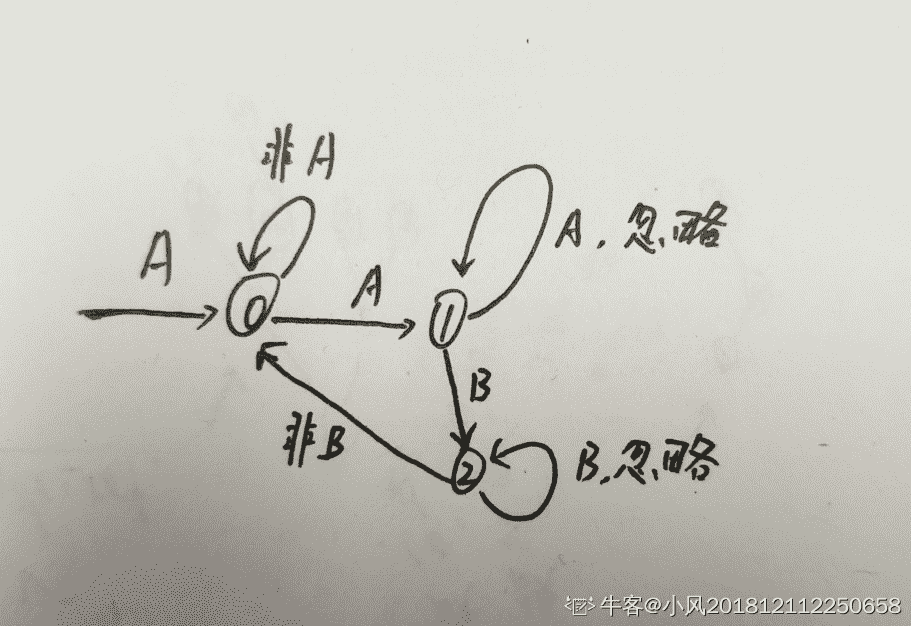 非A
A
A
A, 忽略
0
1
B
非B
2
B, 忽略
牛客@小风201812112250658